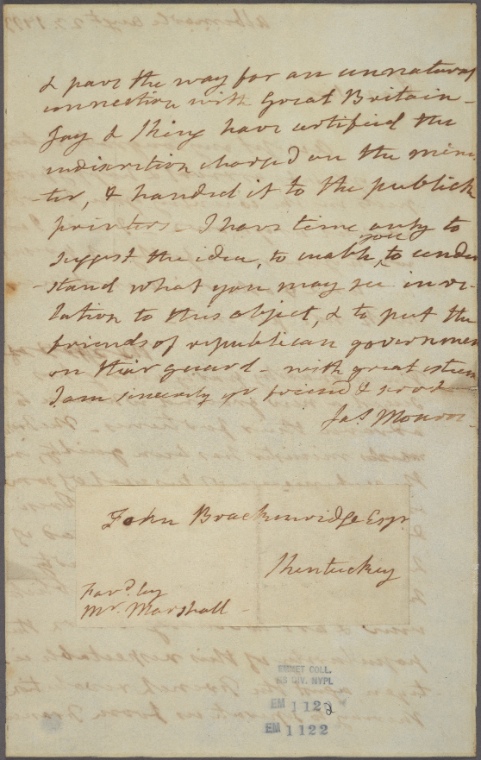 & pave the way for an unnatural
connection with Great Britain -
Jay & King have certified the
indiscretion charged on the minis
-ter, & handed it to the publick
printers. I have time only to
suggest the idea, to enable you to under
-stand what you may see in re-
lation to this object, & to put the
friends of republican government
on their guard - with great esteem
I am sincerely yr friend & servt
Jas Monroe
John Breckenridge Esqr
Kentucky
Favd by
Mr. Marshall -
EMMET COLL.
MS DIV. NYPL
EM 1123
EM 1122